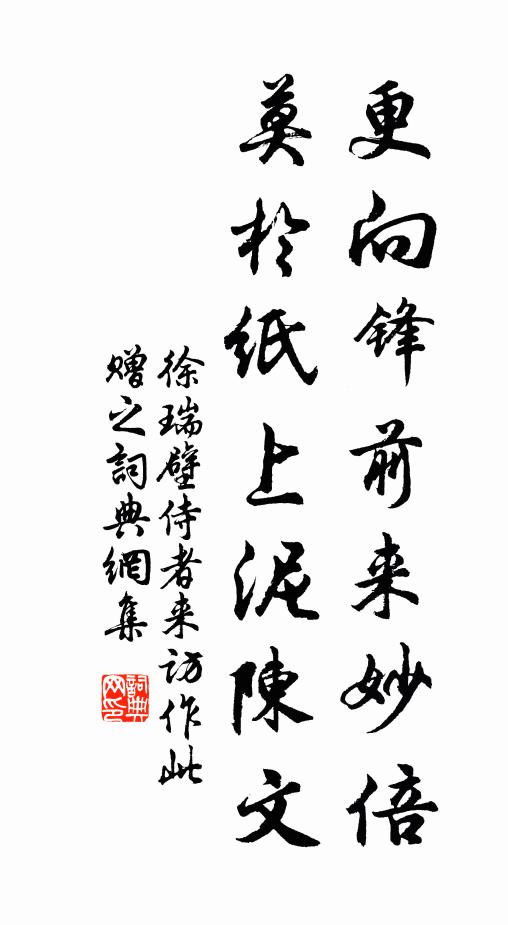 更向锋前来妙倍
莫於紙上泥陳文
徐瑞壁侍者来访作此
赠之詞典網集
詞典
网印